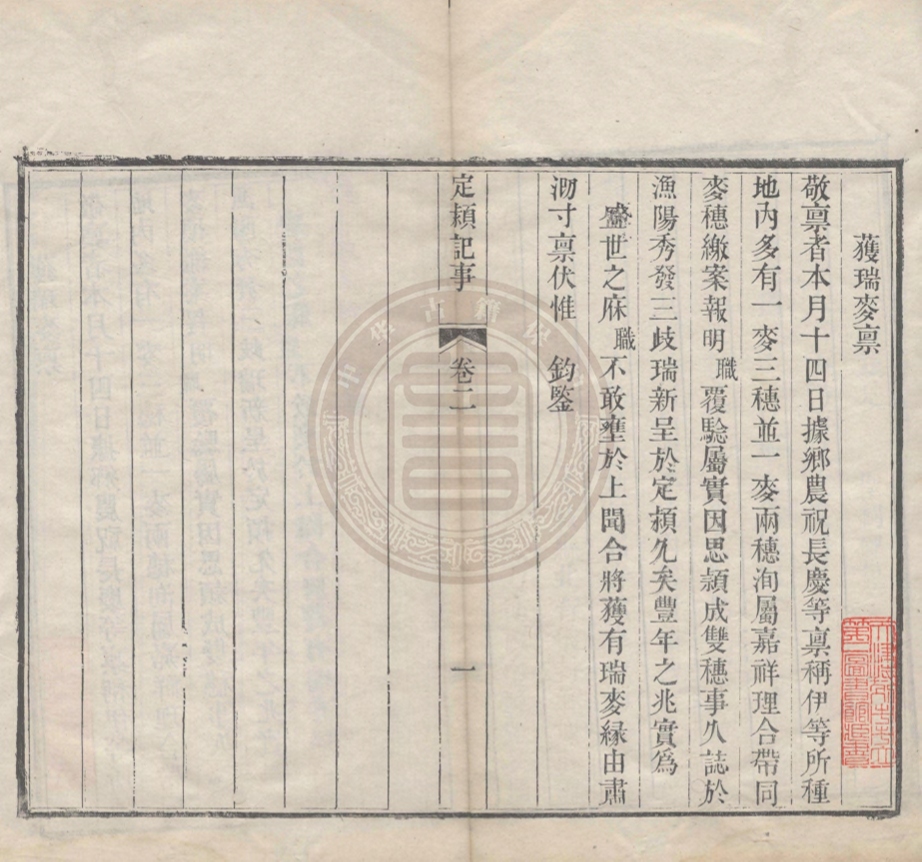 獲瑞麥禀
敬禀者本月十四日據鄉農祝長慶等禀稱伊等所種
地內多有一麥三穗並一麥兩穗洵屬嘉祥理合帶同
麥穗繳案報明職覆驗屬實因思潁成雙穗事久誌於
漁陽秀發三歧瑞新呈於定潁允矣豐年之兆實爲
盛世之庥職不敢壅於上聞合將獲有瑞麥緣由肅
沏寸禀伏惟 鈞鑒
定潁記事 卷二 一
中华古籍保